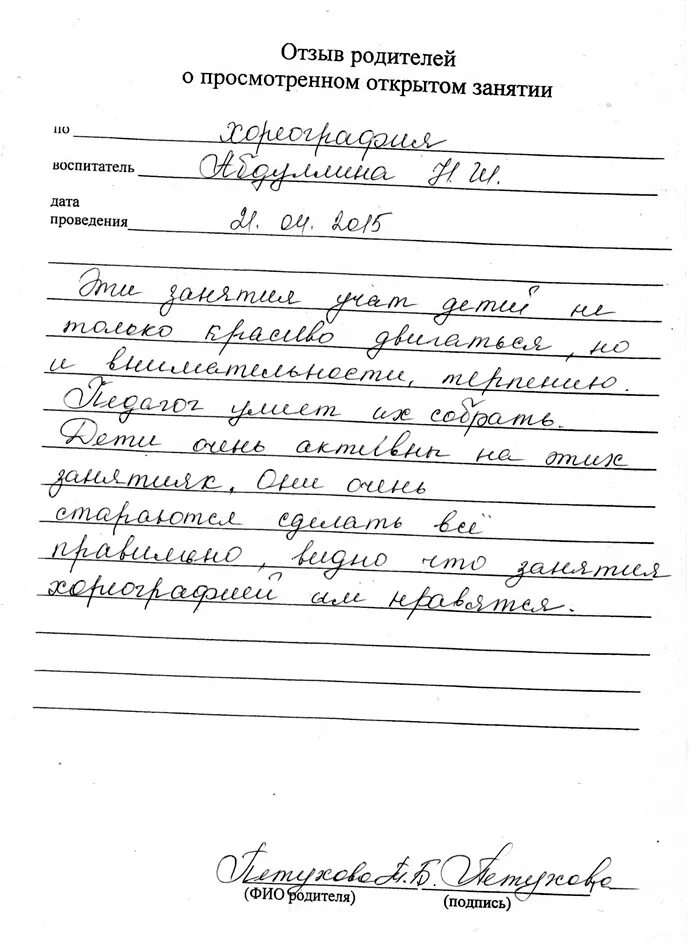 Отзыв родителей
о просмотренном открытом занятии
по хореография
воспитатель Абдуллина Н.Ш.
дата
проведения 21.04.2015
Эти занятия учат детей не
только красиво двигаться, но
и внимательности, терпению.
Педагог умеет их собрать.
Дети очень активны на этих
занятиях. Они очень
стараются сделать всё
правильно, видно что занятия
хореографией им нравятся.
Петухова А.Б. Петухова
(ФИО родителя) (подпись)